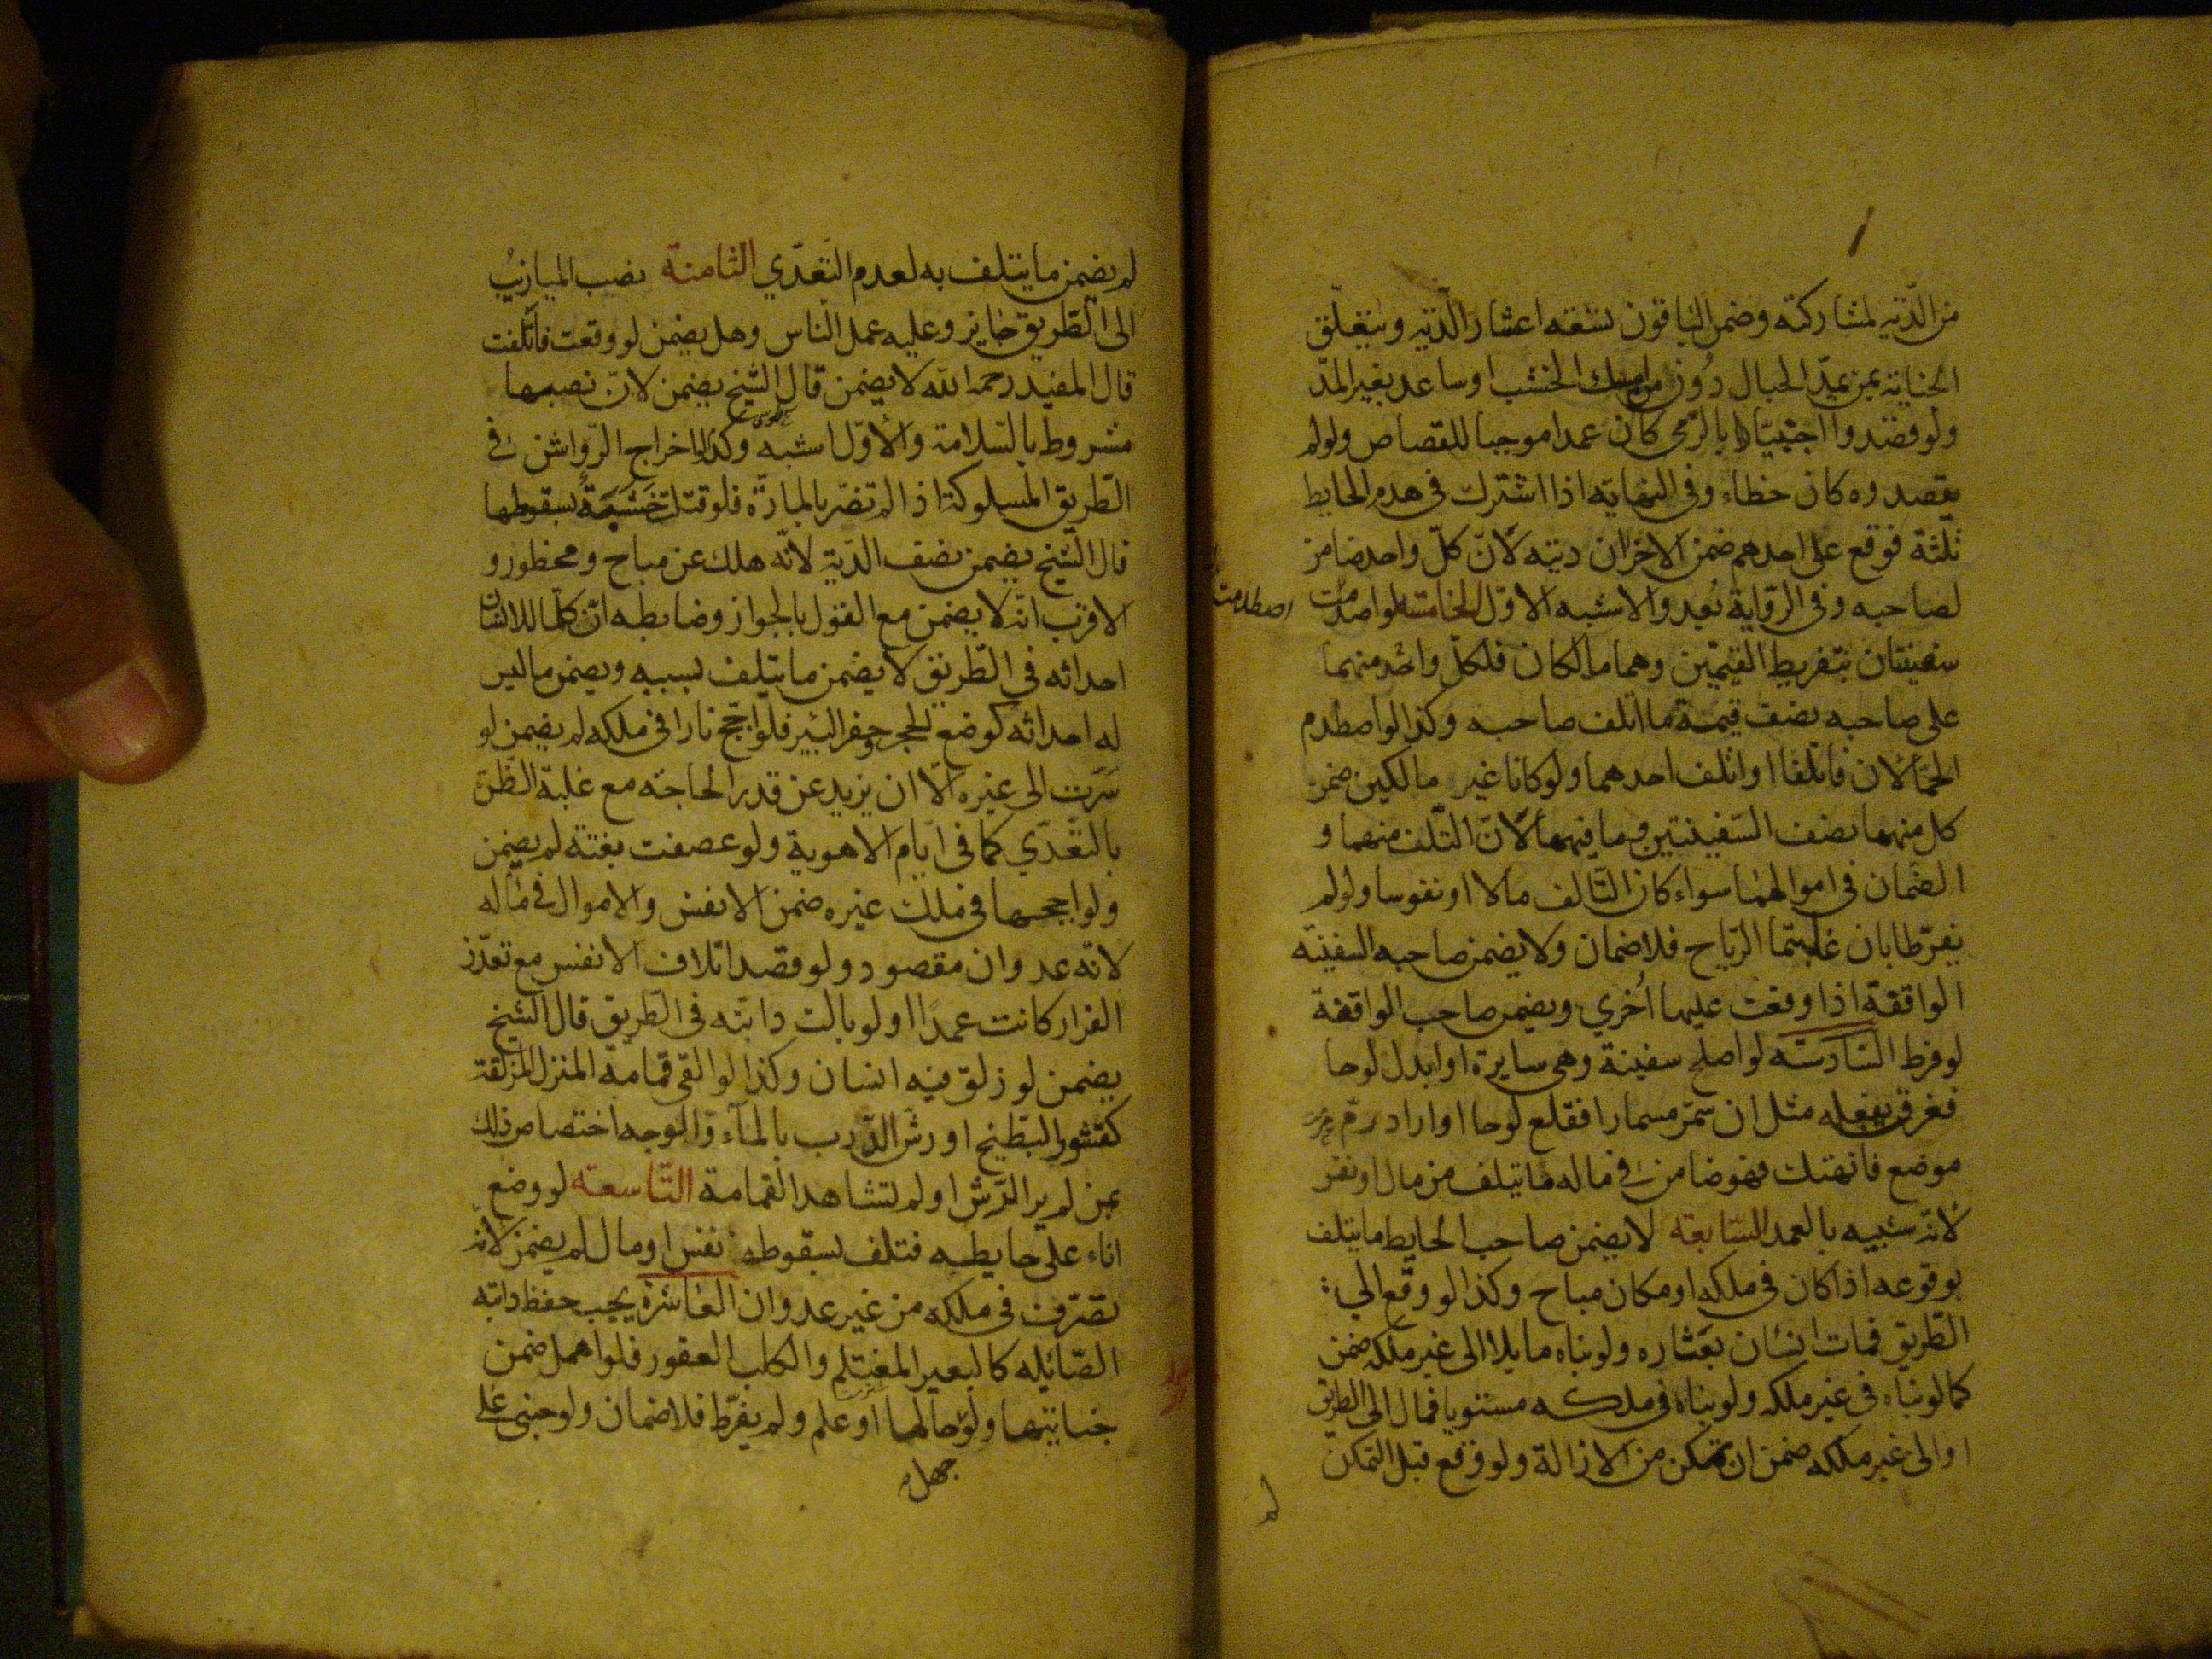 من الدّية لمشاركته وضمن الباقون تسعة اعشار الدّية ويتعلّق
الجناية بمن يمدّ الحبال دُون من امسك الخشب اوساعد بغير المدّ
ولو قصدوا اجنبيّا بالرّمي كان عمدا موجبا للقصاص ولو لم
يقصدوه كان خطاء وفي النهاية اذا اشترك في هدم الحايط
ثلثة فوقع على احدهم ضمن الاخران ديته لانّ كلّ واحد ضامن
لصاحبه وفي الرّواية بُعد والاشبه الاوّل الخامسة لو اصدمت
اصطدمت
سفينتان بتفريط القيّمين وهما مالكان فلكلّ واحد منهما
على صاحبه نصف قيمة ما اتلف صاحبه وكذا لو اصطدم
الحمّالان فاتلفا او اتلف احدهما ولو كانا غير مالكين ضمن
كل منهما نصف السّفينتين وما فيهما لانّ التّلف منهما و
الضمان في اموالهما سواء كان التّالف مالا او نفوسا ولو لم
يفرّطا بان غلبتهما الرّياح فلا ضمان ولا يضمن صاحب السفينة
الواقفة اذا وقعت عليها اُخري ويضمن صاحب الواقعة
لو فرط السّادسة لو اصلح سفينة وهي سايرة او ابدل لوحا
فغرق بفعله مثل ان سمّر مسمارا فقلع لوحا او اراد رمّ
موضع فانهتك فهو ضامن في ماله ما يتلف من مال او نفس
لانّه شبيه بالعمد السّابعة لا يضمن صاحب الحايط ما يتلف
بوقوعه اذا كان في ملكه او مكان مباح وكذا لو وقع الي
الطّريق فمات انسان بغثاره ولو بناه مايلا الى غير ملكه ضمن
كما لو بناه في غير ملكه ولو بناه في ملكه مستويا فمال الى الطريق
او الى غير ملكه ضمن ان تمكن من الازالة ولو وقع قبل التمكن
لم
لم يضمن ما يتلف به لعدم التّعدّي الثامنة نصب الميازيب
الى الطّريق جايز وعليه عمل النّاس وهل يضمن لو وقعت فاتلفت
قال المفيد رحمه الله لا يضمن قال الشّيخ يضمن لانّ نصبها
مشروط بالسّلامة والاوّل اشبه وكذا اخراج الرّواشن في
الطّريق المسلوكة اذا لم تضرّ بالمارّة فلو قتلت خَشَبَةٌ بسقوطها
قال الشّيخ يضمن نصف الدّية لانّه هلك عن مباح ومحظور و
الاقرب انّه لا يضمن مع القول بالجواز وضابطه انّ كلّما للانسان
احداثه في الطّريق لا يضمن ما يتلف بسببه ويضمن ما ليس
له احداثه كوضع الحجر وحفر البئير فلو اجّج نارا في ملكه لم يضمن لو
سَرَت الى غيره الّا ان يزيد عن قدر الحاجة مع غلبة الظّن
بالتّعدّي كما في ايّام الاهوية ولو عصفت بغتة لم يضمن
ولو اججها في ملك غيره ضمن الانفس والاموال في ماله
لانّه عدوان مقصود ولو قصد اتلاف الانفس مع تعذّر
الفرار كانت عمدًا ولو بالت دابته في الطّريق قال الشّيخ
يضمن لو زلق فيه انسان وكذا لو القى قمامة المنزل المزلقة
كقشور البطّيخ او رشّ الدّرب بالمآء والوجه اختصاص ذلك
بمن لم ير الرّش او لم يشاهد القمامة التّاسعة لو وضع
اناء على حايطه فتلف بسقوطه نفس او مال لم يضمن لانّه
تصرّف في ملكه من غير عدوان العاشرة يجب حفظ دابته
الصّائلة كالبعير المغتلم والكلب العقور فلو اهمل ضمن
جنايتها ولو حالها او علم ولم يفرّط فلا ضمان ولو جنى على
جهل